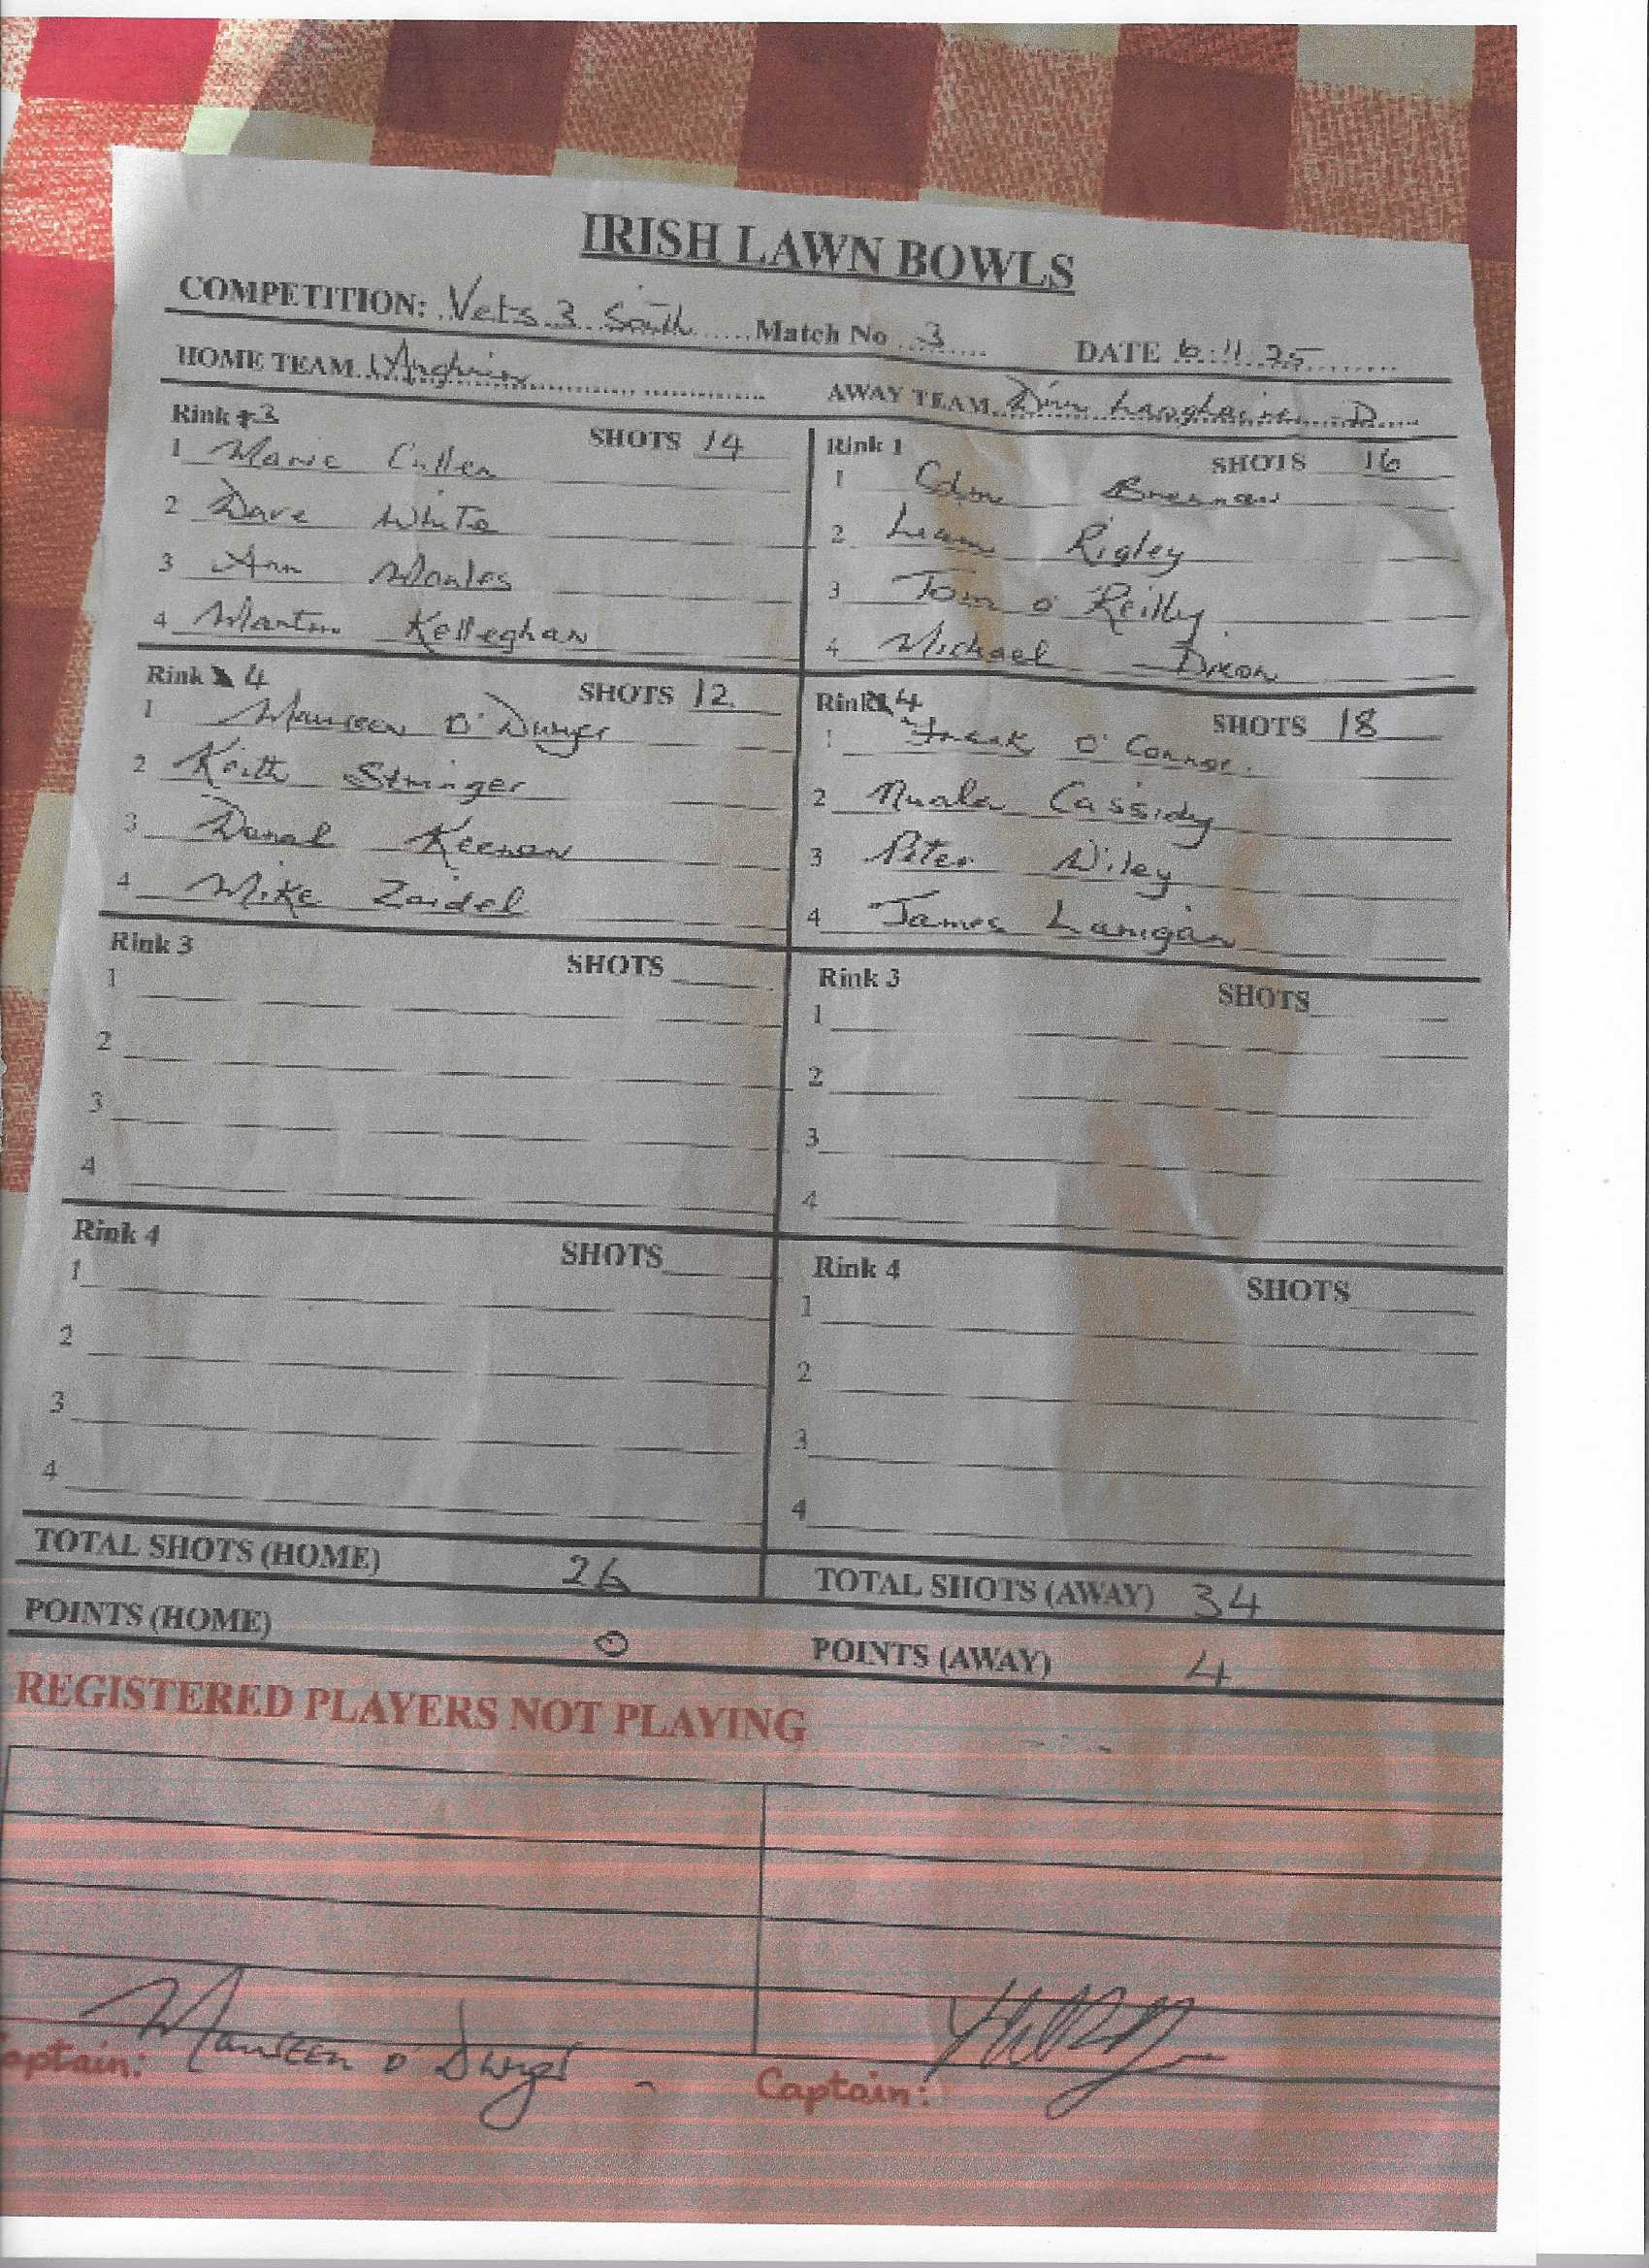 IRISH LAWN BOWLS
COMPETITION: Vets 3 South Match No 3 DATE 6.11.25
HOME TEAM AWAY TEAM Dún Laoghaire D
Rink 3 SHOTS 14
1 Marie Cullen
2 Dave White
3 Ann
4 Martin Kelleghan
Rink 1 SHOTS 16
1 Colm Brennan
2 Liam Rigley
3 Tom O'Reilly
4 Michael Dixon
Rink 4 SHOTS 12
1 Maureen O'Dwyer
2 Keith Stringer
3 Donal Keenan
4 Mike Zaidel
Rink 4 SHOTS 18
1 Frank O'Connor
2 Nuala Cassidy
3 Peter Wiley
4 James Lanigan
Rink 3 SHOTS
1
2
3
4
Rink 3 SHOTS
1
2
3
4
Rink 4 SHOTS
1
2
3
4
Rink 4 SHOTS
1
2
3
4
TOTAL SHOTS (HOME) 26 TOTAL SHOTS (AWAY) 34
POINTS (HOME) 0 POINTS (AWAY) 4
REGISTERED PLAYERS NOT PLAYING
aptain: Maureen O'Dwyer Captain: